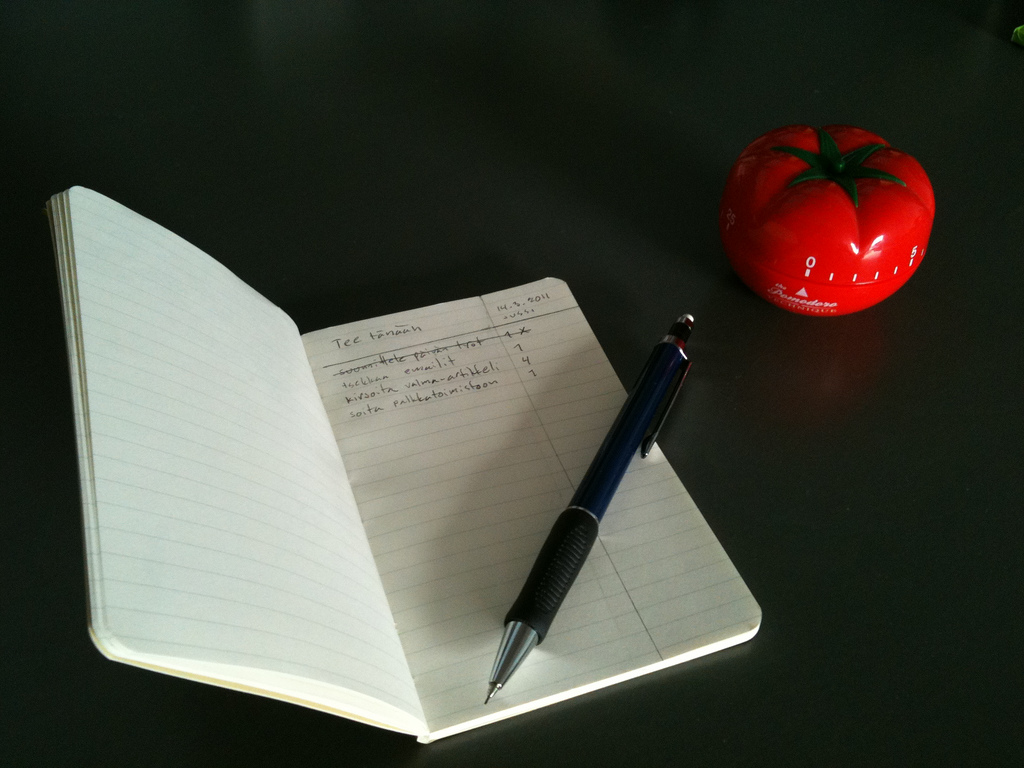 Tee tänään 14.3.2011
Jussi
suunnittele päivän työt 1 X
tsekkaa emailit 1
kirjoita valma-artikkeli 4
soita palkkatoimistoon 1
25
0 5
the
Pomodoro
TECHNIQUE